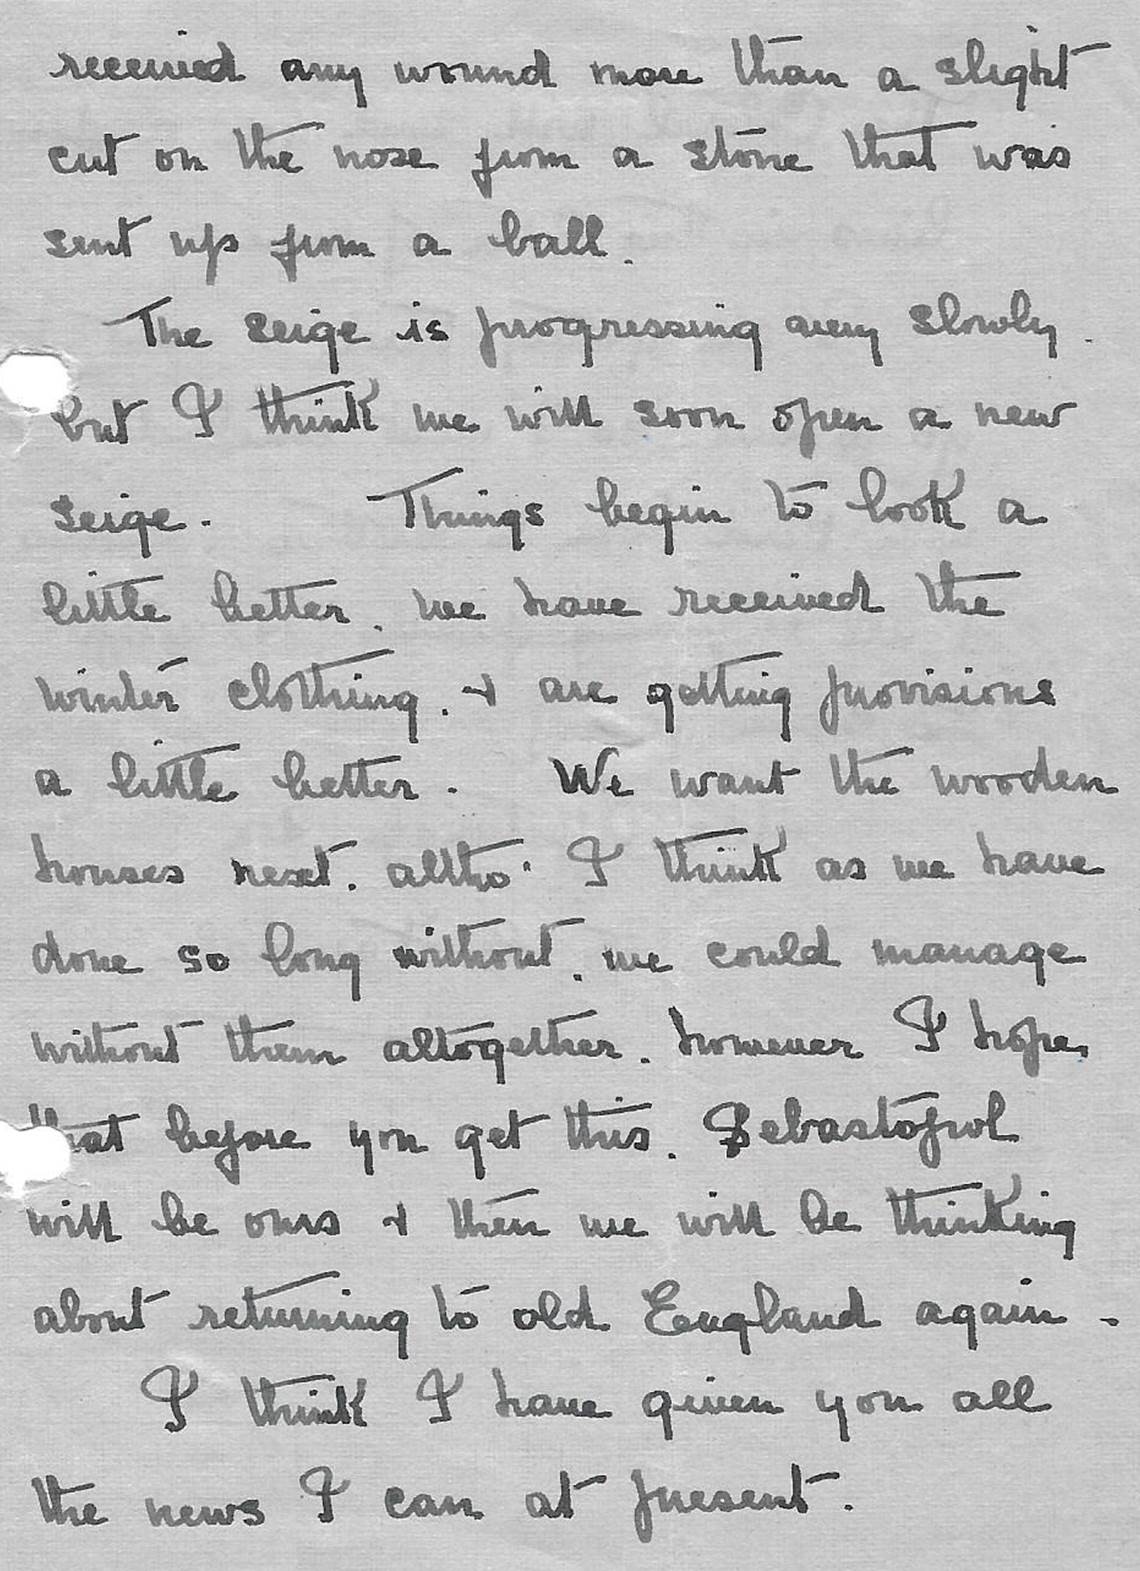 received any wound more than a slight
cut on the nose from a stone that was
sent up from a ball.
The seige is progressing very slowly.
but I think we will soon open a new
seige. Things begin to look a
little better. we have received the
winter clothing. & are getting provisions
a little better. We want the wooden
houses next. altho' I think as we have
done so long without. we could manage
without them altogether. however I hope,
that before you get this. Sebastopol
will be ours & then we will be thinking
about returning to old England again.
I think I have given you all
the news I can at present.